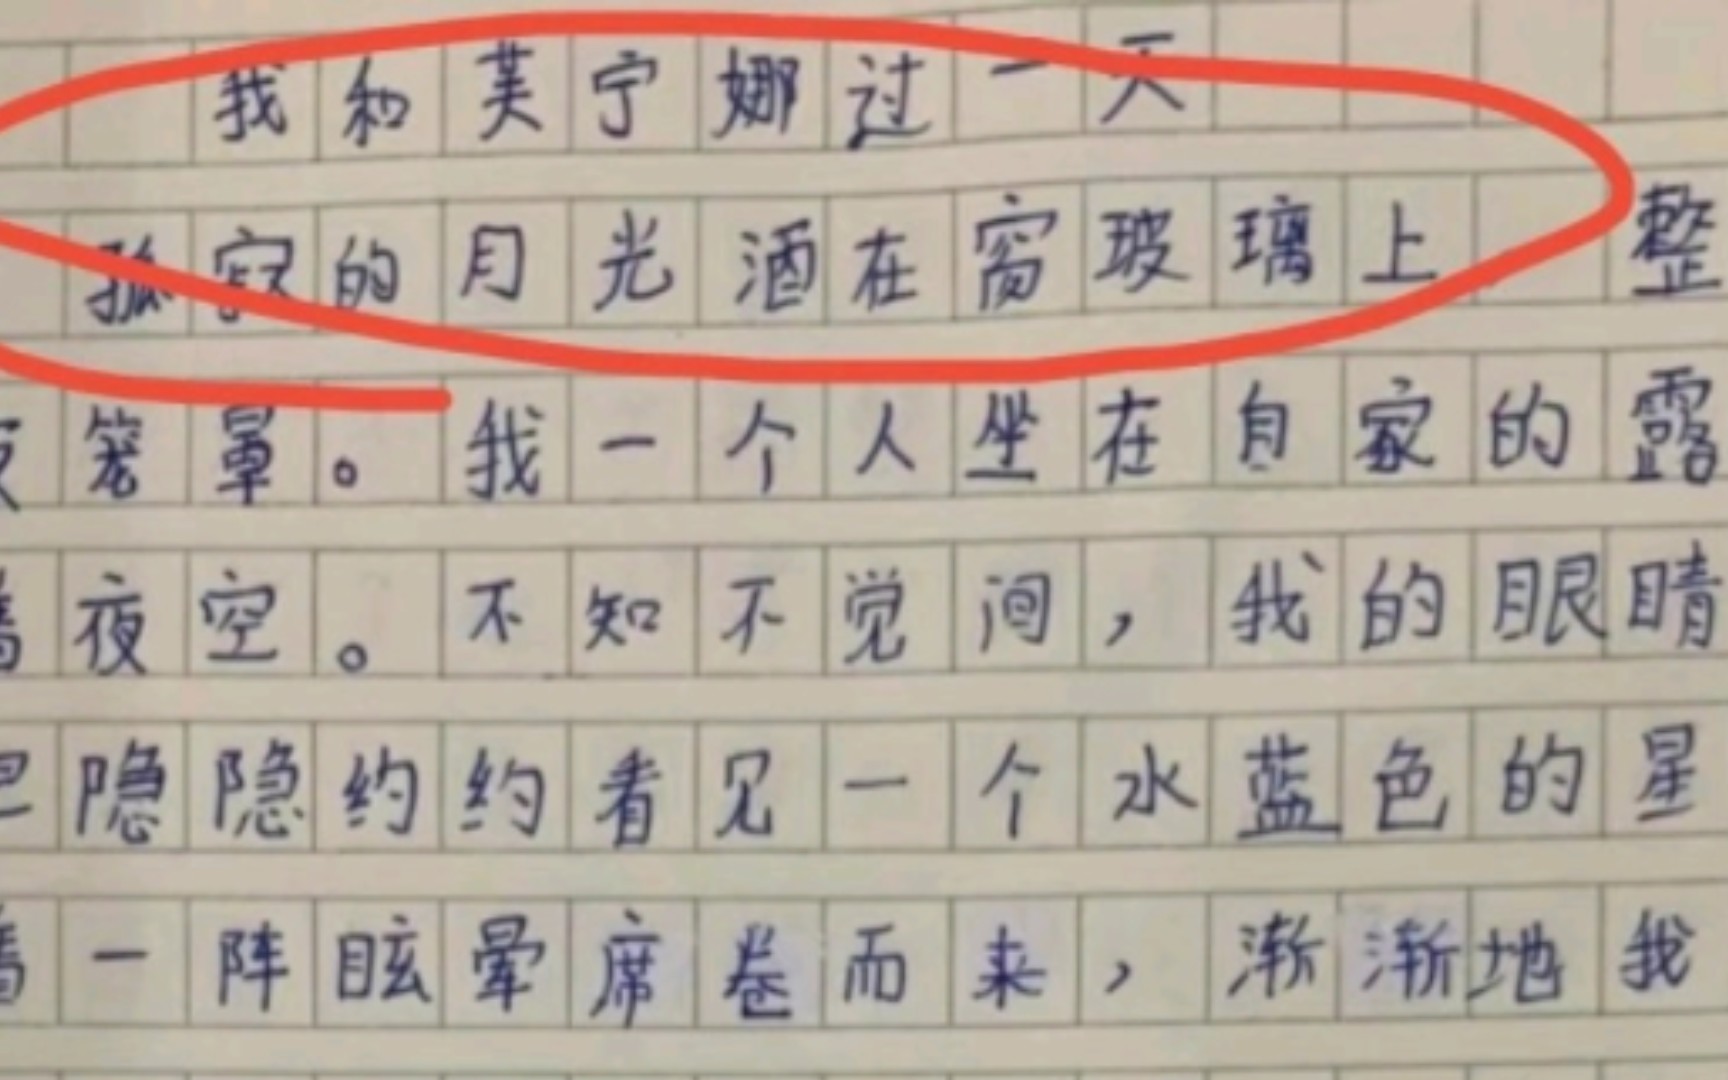 我和芙宁娜过一天
孤寂的月光酒在窗玻璃上 整
笼罩。我一个人坐在自家的露
夜空。不知不觉间,我的眼睛
隐隐约约看见一个水蓝色的星
一阵眩晕席卷而来,渐渐地我